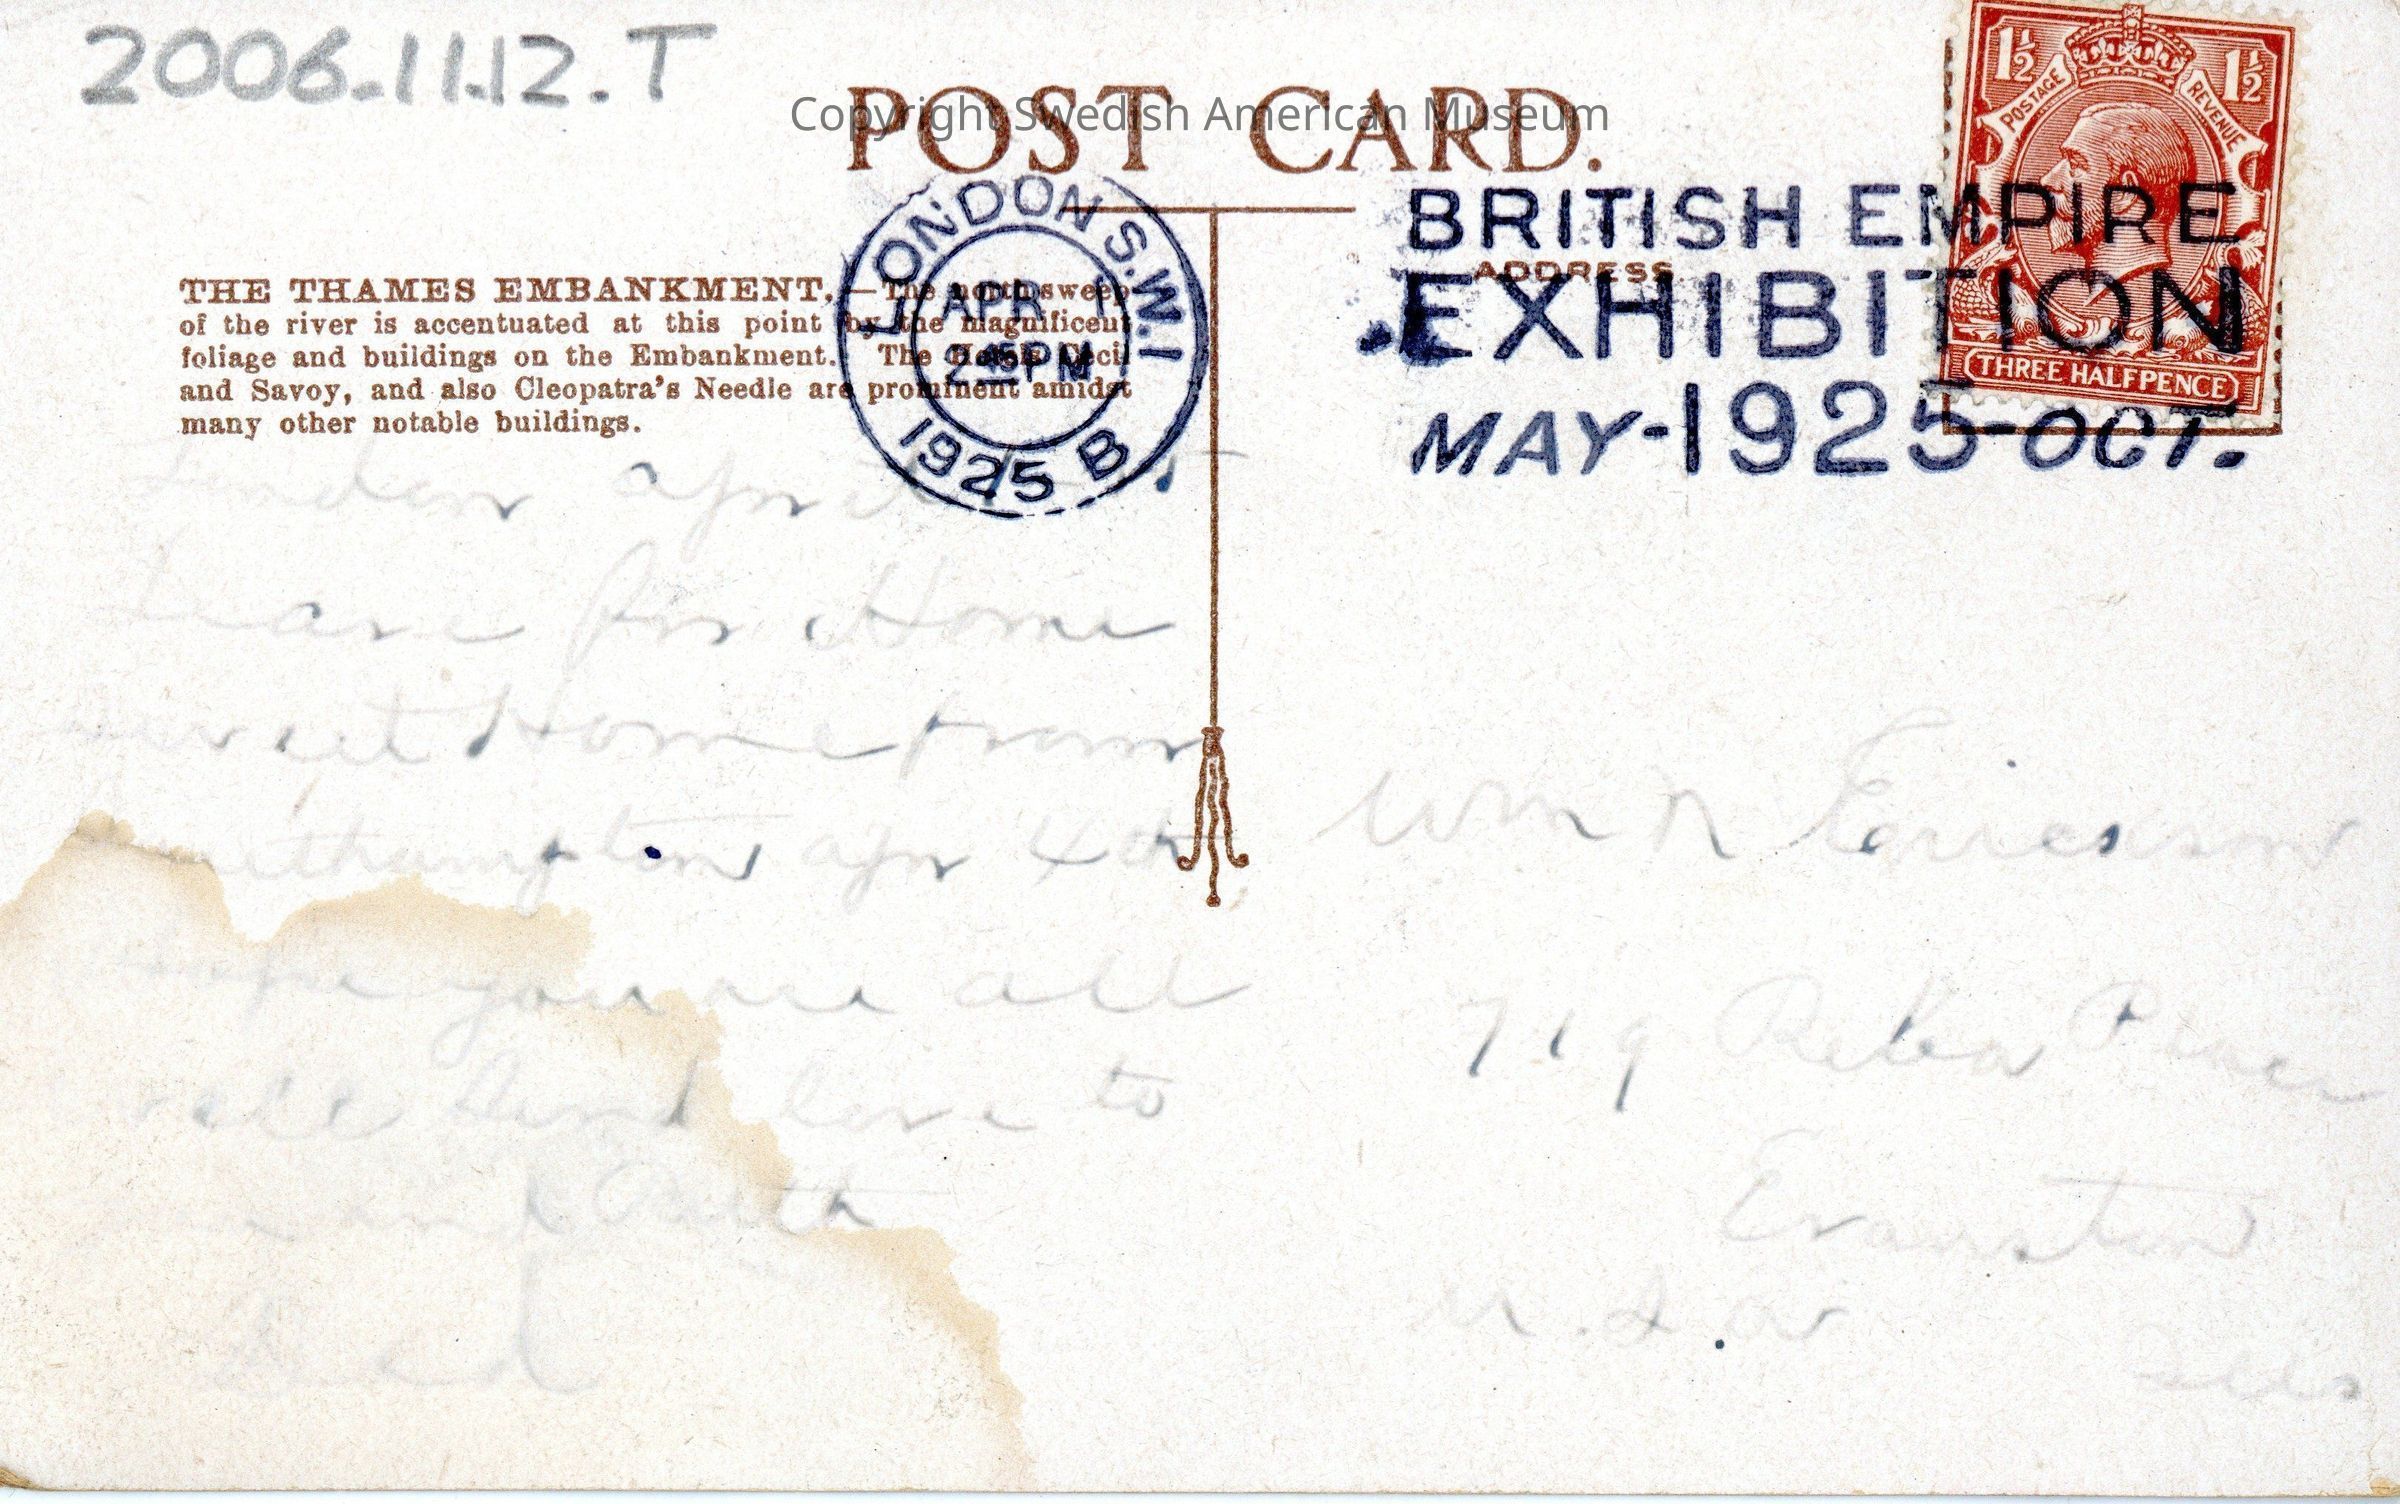 2006.11.12.T
POST CARD.
Copyright Swedish American Museum
THE THAMES EMBANKMENT.—The north sweep
of the river is accentuated at this point by the magnificent
foliage and buildings on the Embankment. The Hotels Cecil
and Savoy, and also Cleopatra's Needle are prominent amidst
many other notable buildings.
LONDON S.W.1
APR 1
2 45 PM
1925 B
ADDRESS
BRITISH EMPIRE
EXHIBITION
MAY-1925-OCT.
1½ 1½
POSTAGE REVENUE
THREE HALFPENCE
London April
Leave for Home
sweet Home from
Southampton apr 4th
Hope you are all
well Send love to
and
Dad
Wm N Ericson
719 Reba Place
Evanston
Ills
U.S.A